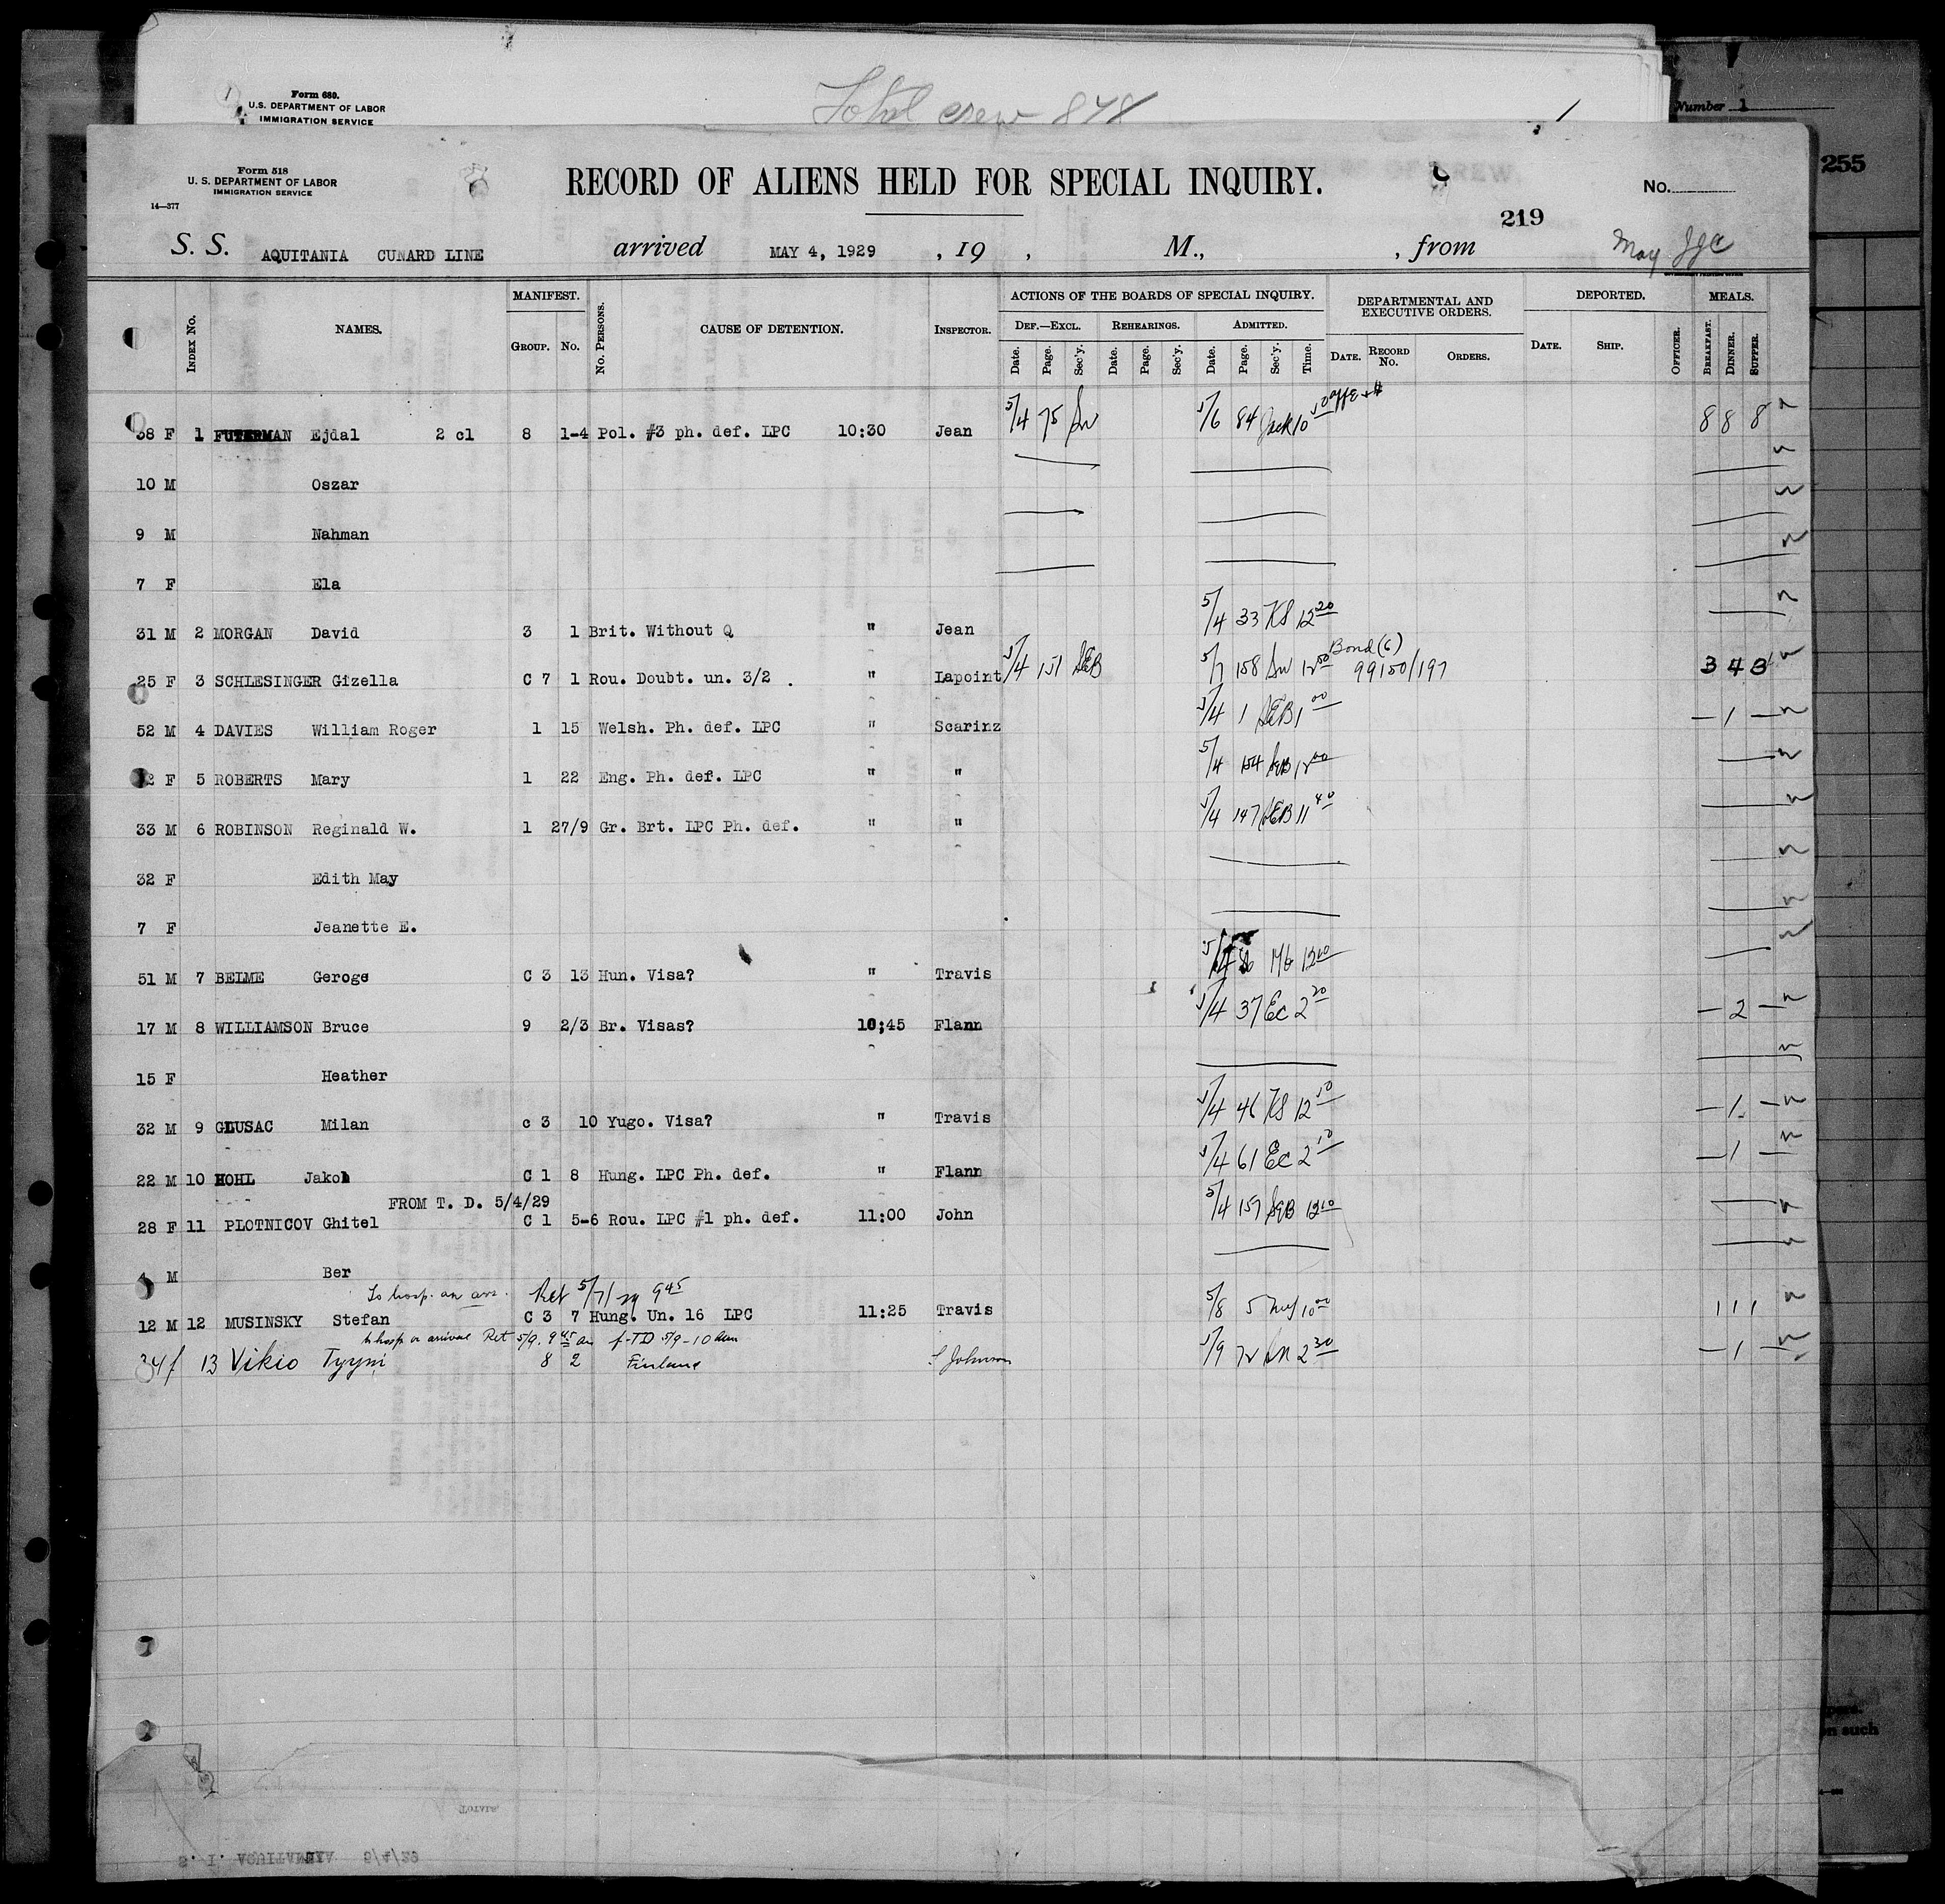 Total crew 878
Form 680.
U.S. DEPARTMENT OF LABOR
IMMIGRATION SERVICE
Number 1
255
Form 518
U. S. DEPARTMENT OF LABOR
IMMIGRATION SERVICE
14—377
RECORD OF ALIENS HELD FOR SPECIAL INQUIRY.
No.
219
S. S. AQUITANIA CUNARD LINE arrived MAY 4, 1929 , 19 , M., , from May
MANIFEST. ACTIONS OF THE BOARDS OF SPECIAL INQUIRY. DEPARTMENTAL AND EXECUTIVE ORDERS. DEPORTED. MEALS.
INDEX No. NAMES. GROUP. No. No. PERSONS. CAUSE OF DETENTION. INSPECTOR. DEF.—EXCL. REHEARINGS. ADMITTED.
Date. Page. Sec'y. Date. Page. Sec'y. Date. Page. Sec'y. Time. DATE. RECORD No. ORDERS. DATE. SHIP. OFFICER. BREAKFAST. DINNER. SUPPER.
38 F 1 FUTERMAN Ejdal 2 cl 8 1-4 Pol. #3 ph. def. LPC 10:30 Jean 5/4 75 5/6 84 Jack 10 8 8 8
10 M Oszar
9 M Nahman
7 F Ela
31 M 2 MORGAN David 3 1 Brit. Without Q " Jean 5/4 33 KS 12 20
Bond (6)
25 F 3 SCHLESINGER Gizella C 7 1 Rou. Doubt. un. 3/2 . " Lapoint 5/4 151 SEB 5/7 158 99150/197 3 4 3
52 M 4 DAVIES William Roger 1 15 Welsh. Ph. def. LPC " Scarinz 5/4 1 SEB 1 00 — 1 —
2 F 5 ROBERTS Mary 1 22 Eng. Ph. def. LPC " " 5/4 154 SEB 12 00
33 M 6 ROBINSON Reginald W. 1 27/9 Gr. Brt. LPC Ph. def. " " 5/4 147 SEB 11 40
32 F Edith May
7 F Jeanette E.
51 M 7 BEIME Geroge C 3 13 Hun. Visa? " Travis 5/4
17 M 8 WILLIAMSON Bruce 9 2/3 Br. Visas? 10;45 Flann 5/4 37 Ec 2 20 — 2 —
15 F Heather
32 M 9 GLUSAC Milan c 3 10 Yugo. Visa? " Travis 5/4 46 KS 12 10 — 1 —
22 M 10 HOHL Jakob C 1 8 Hung. LPC Ph. def. " Flann 5/4 61 Ec 2 10 — 1 —
FROM T. D. 5/4/29
28 F 11 PLOTNICOV Ghitel C 1 5-6 Rou. LPC #1 ph. def. 11:00 John 5/4 157 SEB 12 10
M Ber
To hosp. on arr. Ret 5/7/29 9 45
12 M 12 MUSINSKY Stefan C 3 7 Hung. Un. 16 LPC 11:25 Travis 5/8 5 10 00 1 1 1
to hosp on arrival Ret 5/9. 9 45 am f-TD 5/9-10 am
34 f 13 Vikio Tyyni 8 2 Finland Johnson 5/9 72 2 30 — 1 —
S. I. AQUITANIA 5/4/29